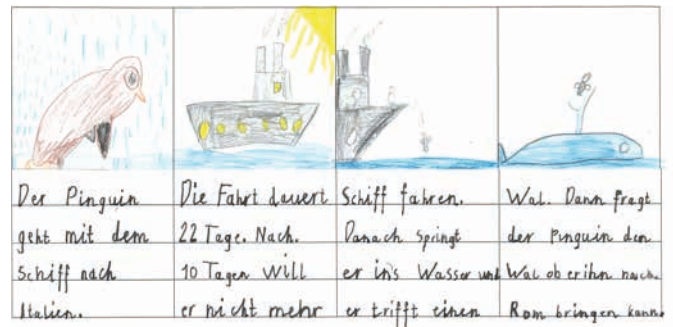 Der Pinguin
geht mit dem
Schiff nach
Italien.
Die Fahrt dauert
22 Tage. Nach.
10 Tagen will
er nicht mehr
Schiff fahren.
Danach springt
er in's Wasser und
er trifft einen
Wal. Dann fragt
der Pinguin den
Wal ob er ihn nach.
Rom bringen kann.